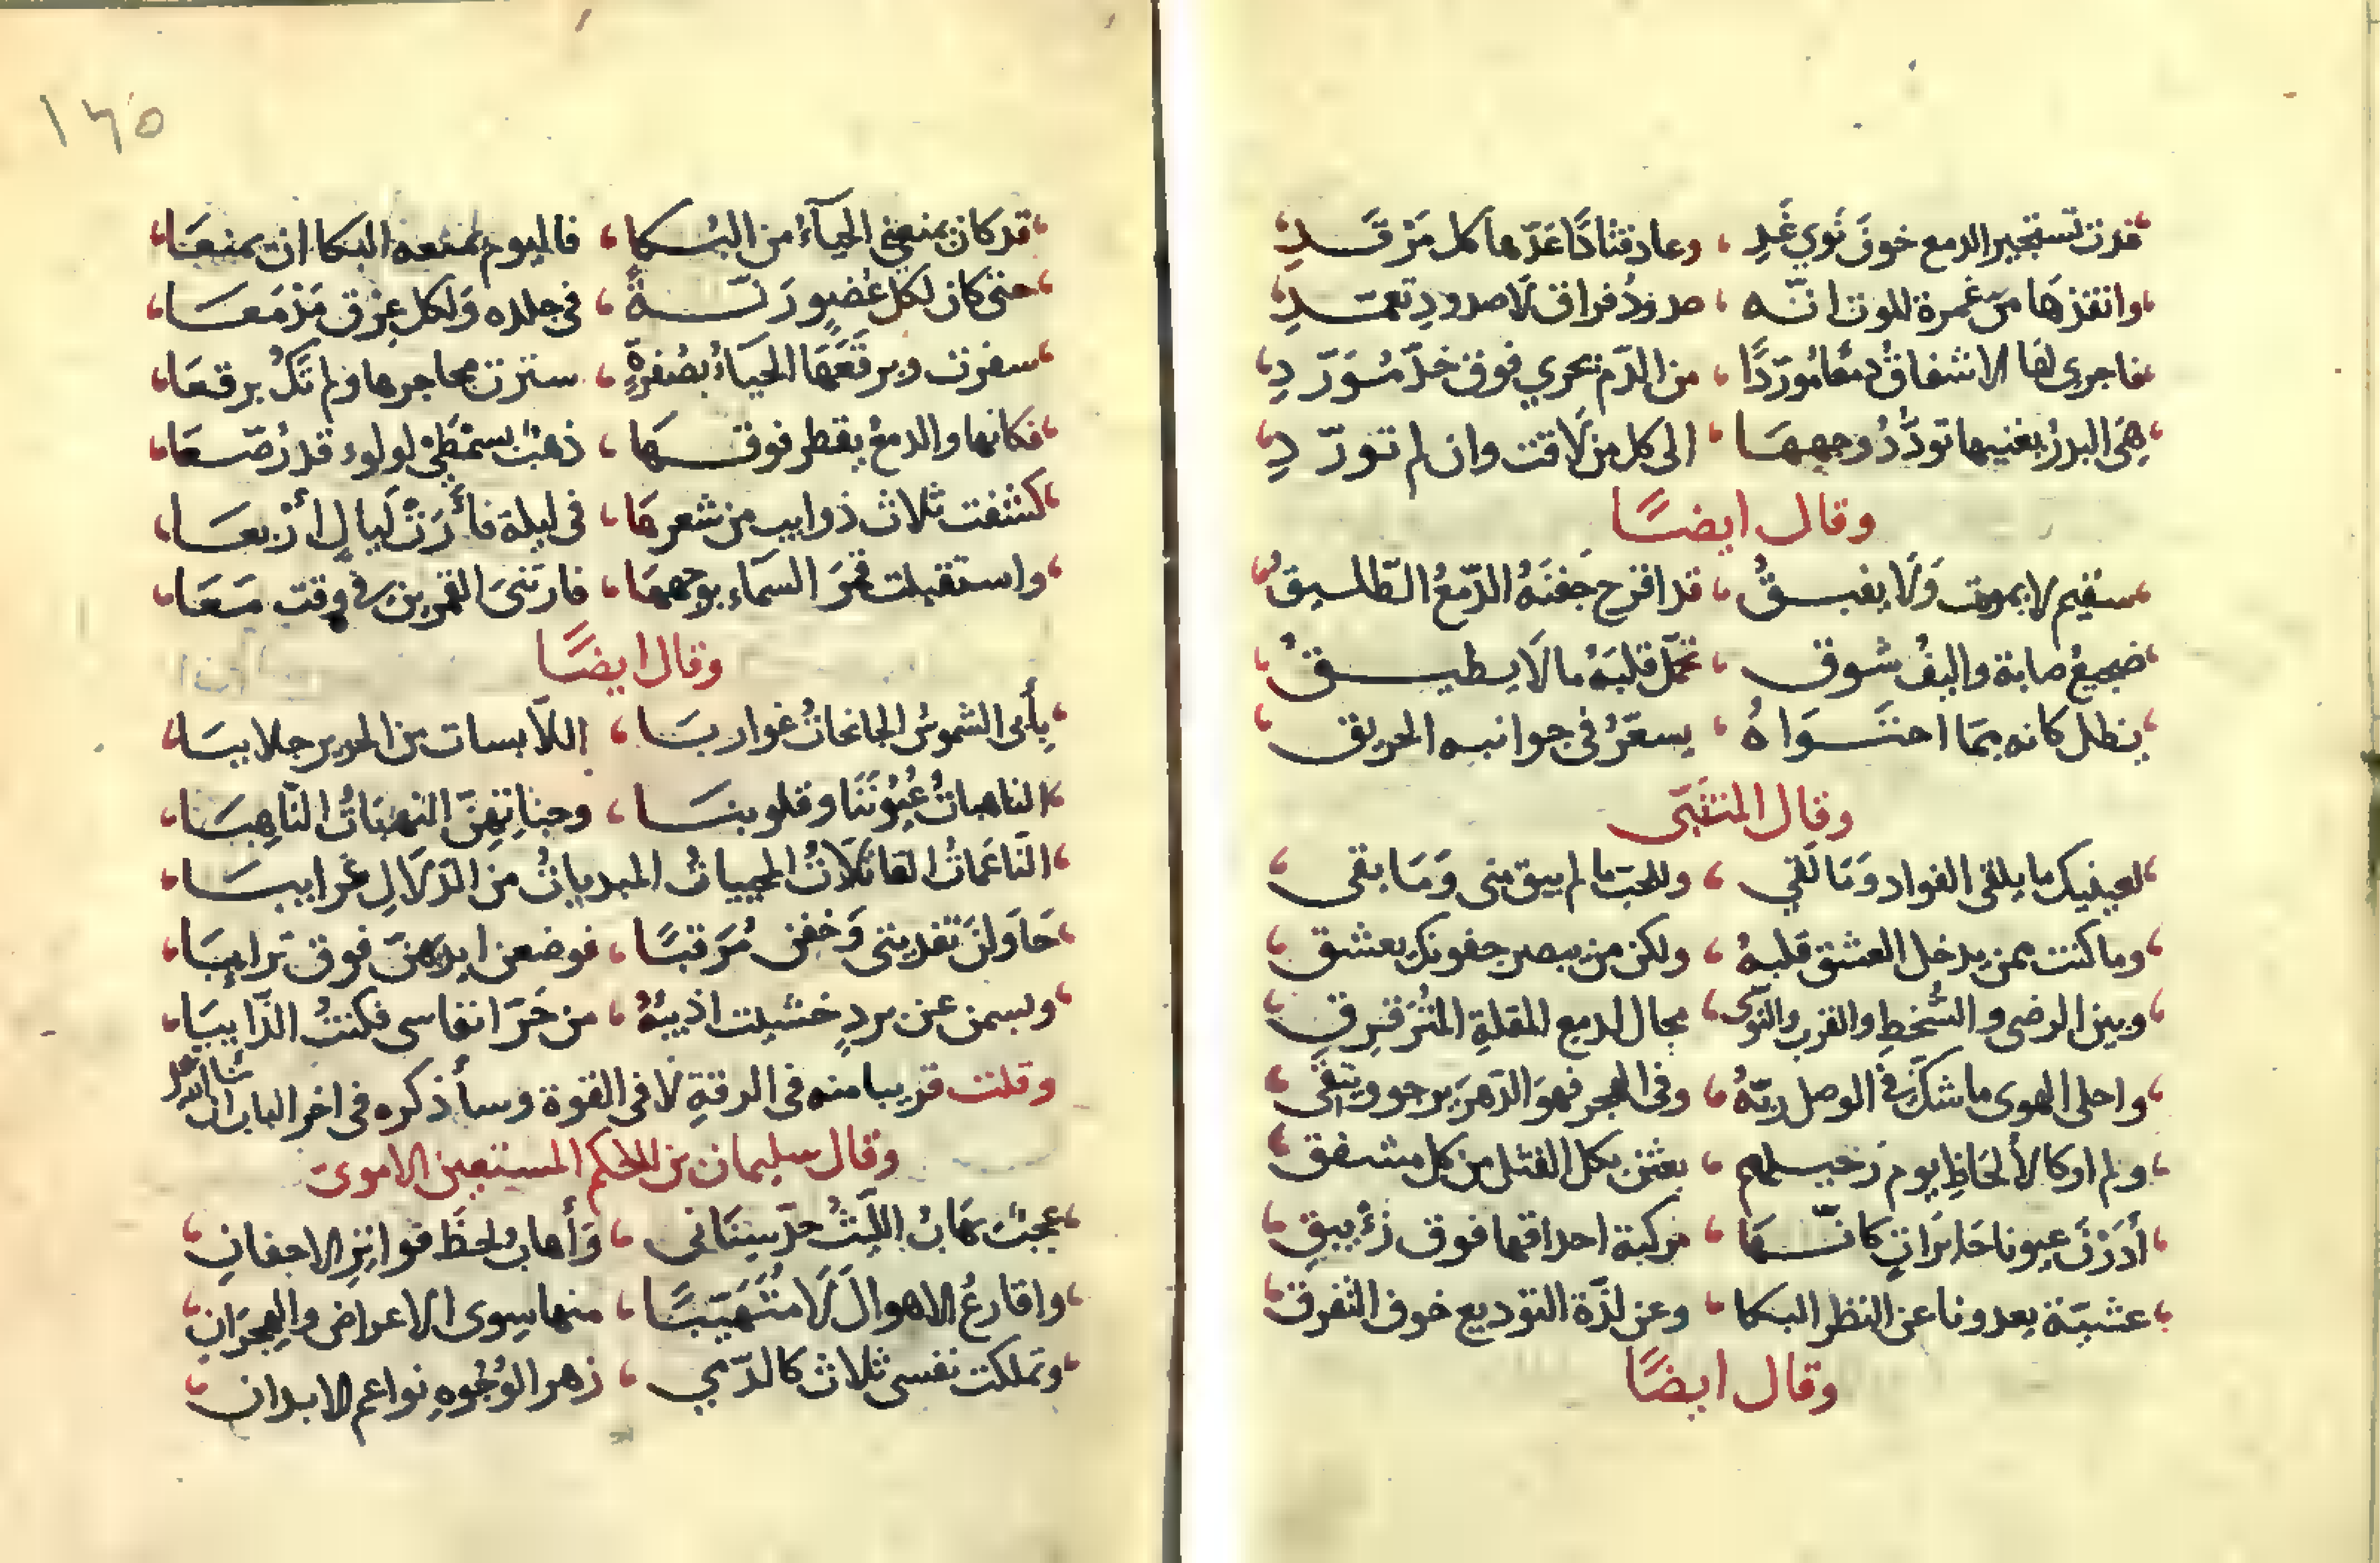 غدت تستجير الدمع خوف نوي غد ، وعاد قتادًا عندها كل مرقد
وانقذها من غمرة الموت انه ، صدود فراق لا صدود تعمد
فاجرى لها الاشفاق دمعا موردًا ، من الدم يجري فوق خد مورد
هي البدر يغنيها تودد وجهها ، الى كل من لاقت وان لم تودد
وقال ايضا
سقيم لا يموت ولا يفيق ، قد اقرح جفنه الدمع الطليق
ضجيع صبابة واليف شوق ، تحمل قلبه ما لا يطيق
يظل كانه مما احتواه ، يسعر في جوانبه الحريق
وقال المتنبي
لعينيك ما يلقى الفواد وما لقي ، وللحب ما لم يبق منى وما بقى
وما كنت ممن يدخل العشق قلبه ، ولكن من يبصر جفونك يعشق
وبين الرضى والسخط والقرب والنوى ، مجال لدمع المقلة المترقرق
واحلى الهوى ما شك في الوصل ربه ، وفى الهجر فهو الدهر يرجو ويتقى
ولم ار كالألحاظ يوم رحيلهم ، بعثن بكل القتل من كل مشفق
أدرن عيونا حايرات كانها ، مركبة احداقها فوق زئيبق
عشية يعدونا عن النظر البكا ، وعن لذة التوديع خوف التفرق
وقال ايضًا
١٦٥
قد كان يمنعني الحيآء من البكا ، فاليوم يمنعه البكا ان يمنعا
حتى كان لكل عضو رنة ، في جلده ولكل عرق مدمعا
سفرت وبرقعها الحياء بصفرة ، سترت محاجرها ولم تك برقعا
فكانها والدمع يقطر فوقها ، ذهب بسمطي لولوء قد رصعا
كشفت ثلاث ذوايب من شعرها ، في ليلة فأرت ليال أربعا
واستقبلت قمر السماء بوجهها ، فارتني القمرين في وقت معا
وقال ايضًا
بأبي الشموس الجانحات غواربا ، اللابسات من الحرير جلاببا
الناهبات عيوننا وقلوبنا ، وجناتهن الناهبات الناهبا
الناعمات القاتلات المحييات المبديات من الدلال غرايبا
حاولن تفديتي وخفن مرقبًا ، فوضعن ايديهن فوق ترايبا
وبسمن عن برد خشيت اذيبه ، من حر انفاسى فكنت الذايبا
وقلت قريبا منه فى الرقة لا فى القوة وسأذكره فى اخر الباب ان شا الله
وقال سليمان بن الحكم المستعين الاموى
عجبت يهاب الليث حد سناني ، وأهاب لحظ فواتر الاجفان
واقارع الاهوال لا متهيبًا ، منها سوى الاعراض والهجران
وتملكت نفسى ثلاث كالدمي ، زهر الوجوه نواعم الابدان